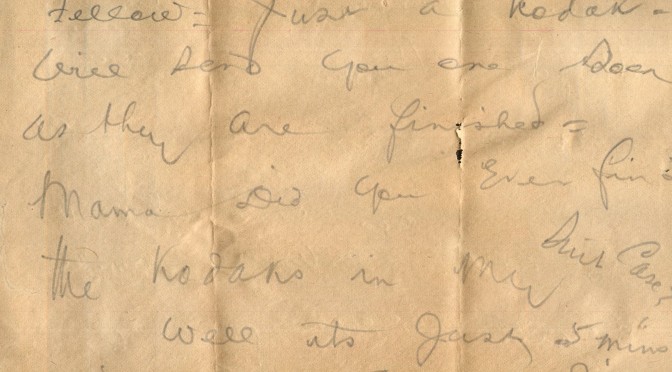 Fellow = Just a Kodak -
Will send you one Soon
as they are finished =
Mama Did you Ever fin
the Kodaks in my Suit Case,
Well its Just 5 mins